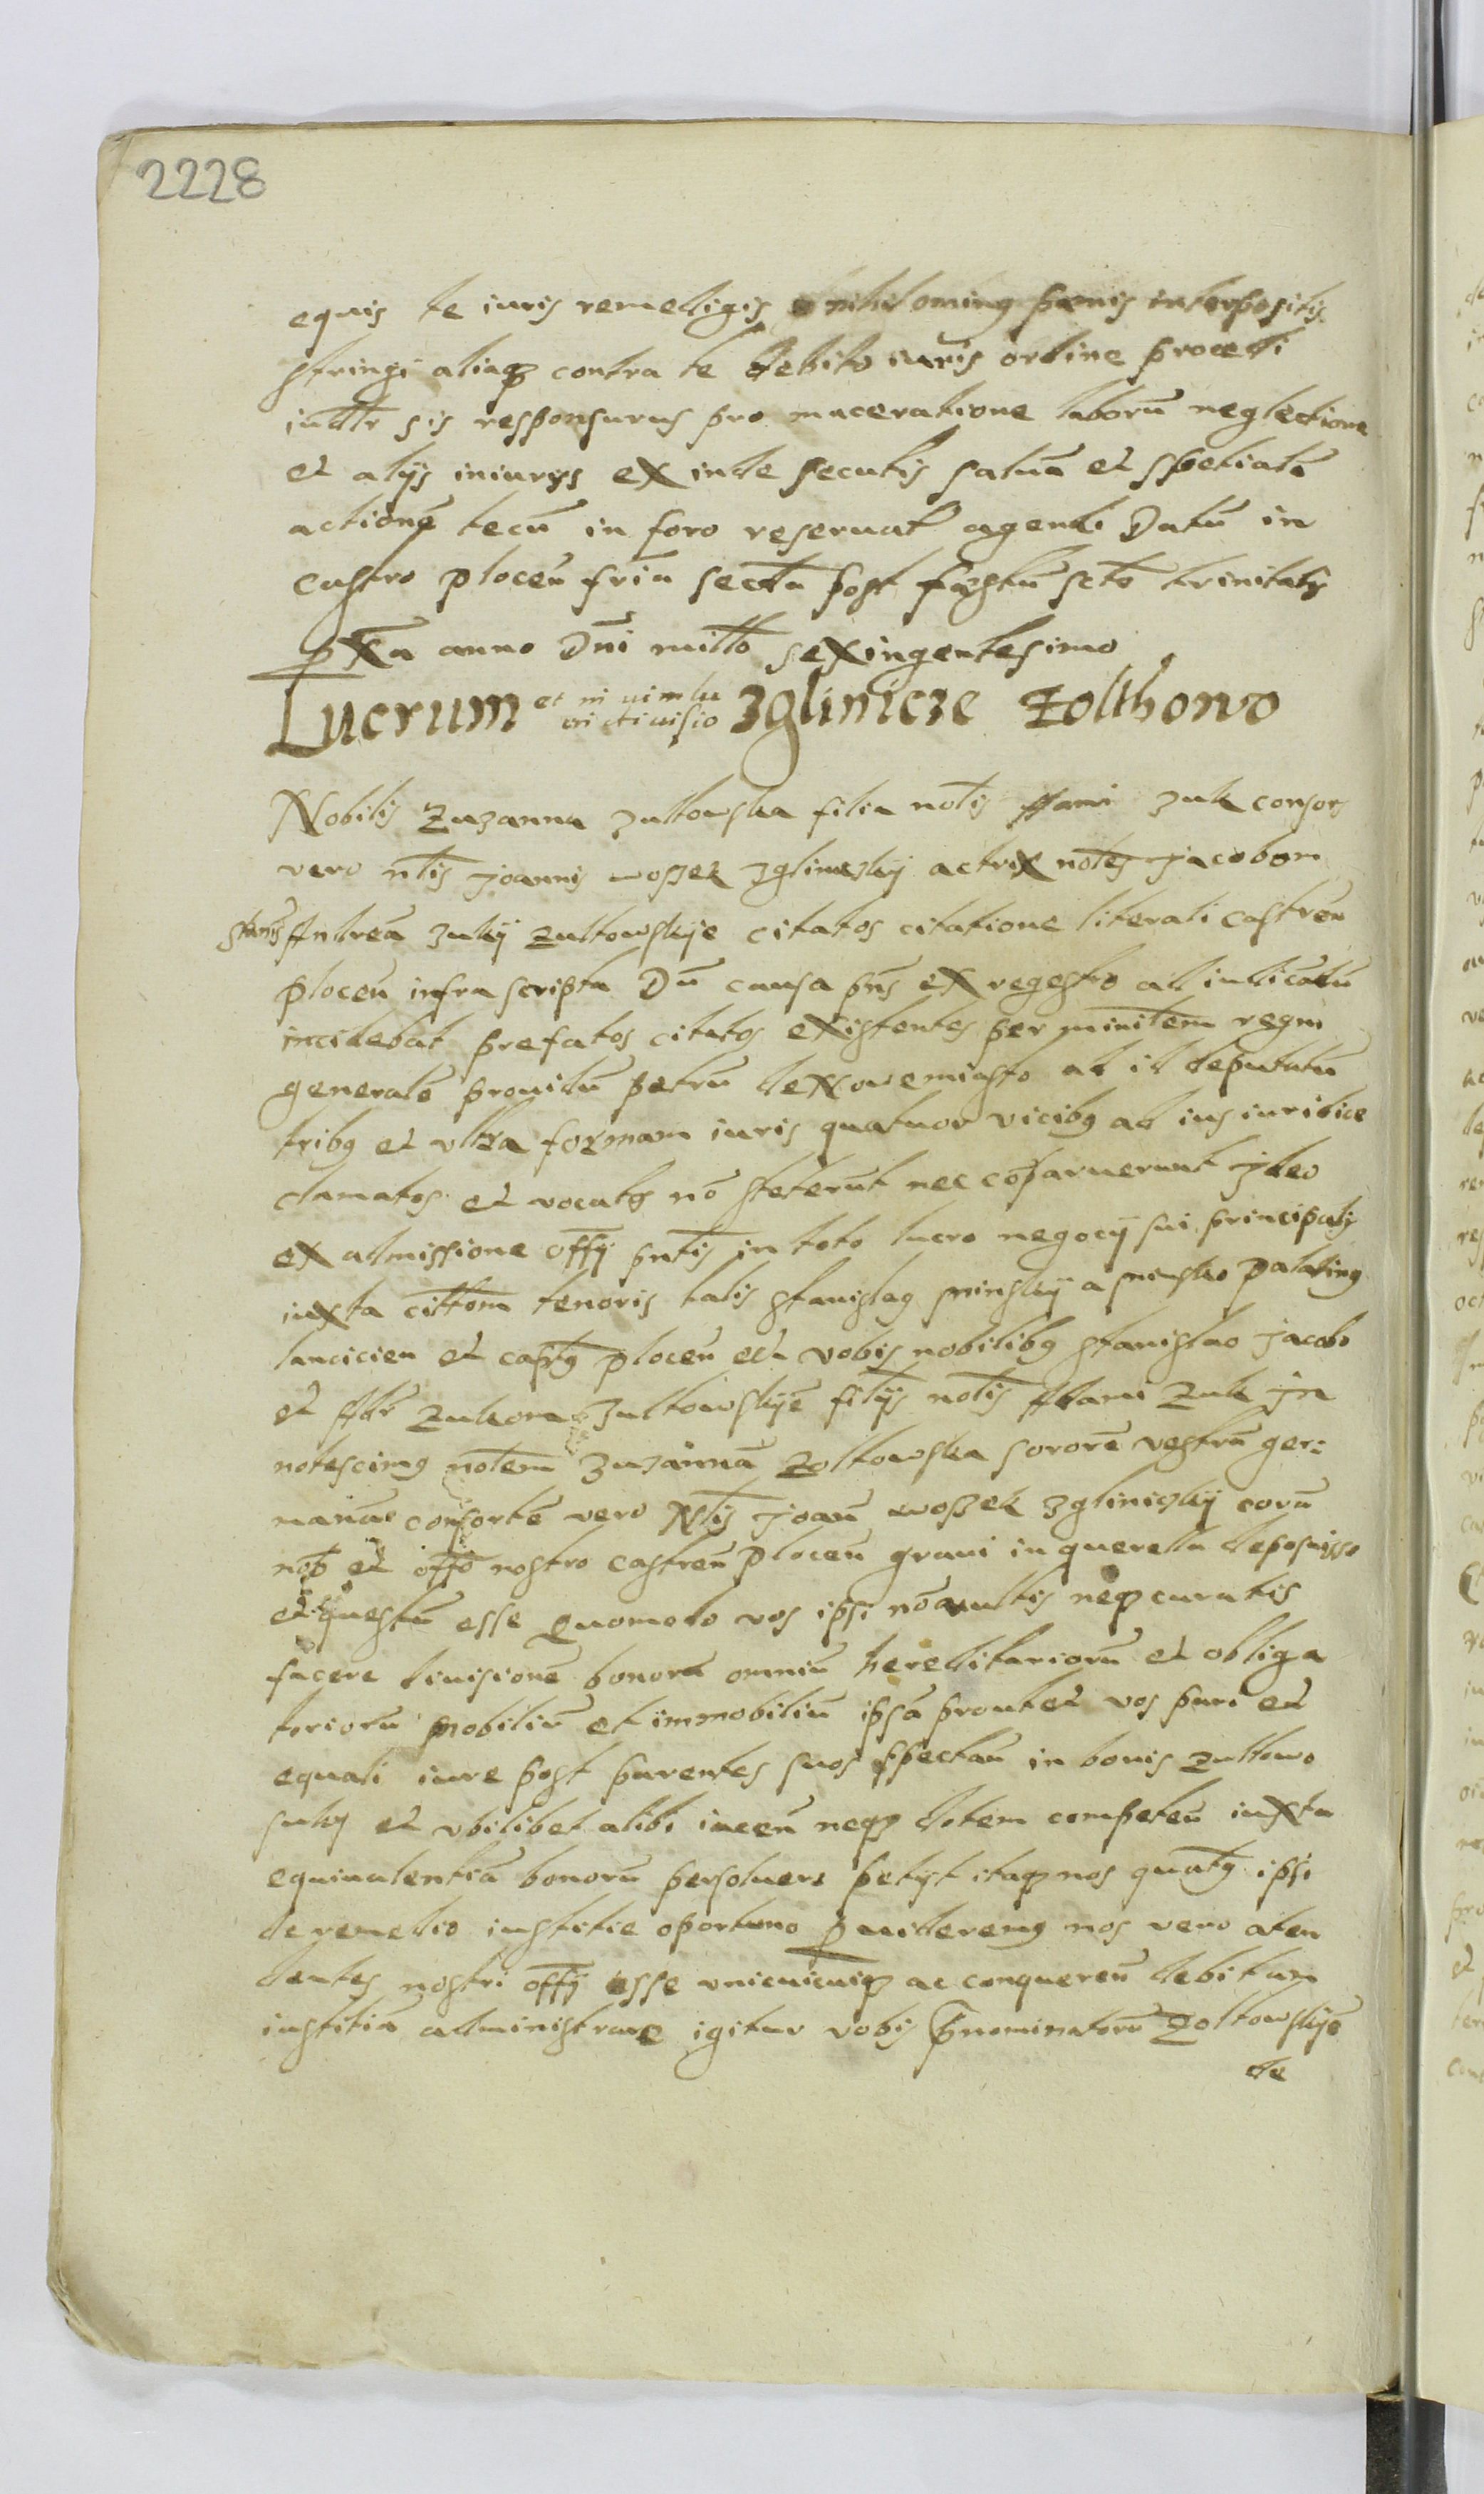 2228
equis te iuris remedijs nihilominꝰ pænis interpositis
stringi aliaqꝫ contra te debito iuris ordine procedi
iudltr sis responsurus pro maceratione laborũ neglectione
et alijs iniurys ex inde secutis saluã et spetialẽ
actionẽ tecũ in foro reseruat agendi Datũ in
castro plocen̄ fria̅ secda̅ post festũ scte̅ trinitatis
px̅a anno Dn̄i millo̅ sexingentesimo
Lucrum et in uim lu
ori diuisio Zglinicze Zolthowo
Nobilis Zuzanna Zultowska filia nolis̅ Adami Zuk consors
vero nlis̅ Joannis woszek Zgliniczky actrix noles̅ Jacobum
Stanis̅ Andreã Zuky Zultowskije citatos citatione literali castren̄
plocen̄ infra scripta Dũ causa pn̄s ex regestro ad iudicandũ
incidebat prefatos citatos existentes per ministem̅ regni
generalẽ prouidũ petrũ de Nowemiasto ad id deputatũ
tribꝰ et vltra formam iuris quatuor vicibꝰ ad ius iuridice
clamatos et vocatos nõ steterũt nec cõparuerunt Ideo
ex admissione offy̅ pn̄tis in toto lucro negocÿ sui principalis
iuxta cittom̅ tenoris talis Stanislaꝰ Minsky a Minsko Palatinꝰ
lancicien et captꝰ̅ plocen̄ etc vobis nobilibꝰ Stanislao Jacobo
et Adr̅ Zukom Zultowskyẽ filijs nolis̅ Adami Zuk In
notescimꝰ nolem̅ Zuzannã Zoltowska sororẽ vestrã ger:
manã consortẽ vero Nlis̅ Joan̄ woszek Zgliniczky corũ
nob̅ et offo̅ nostro castren̄ plocen̄ graui in querella deposuisse
et questũ esse Quomodo vos ipsi nõ vultis neqꝫ curatis
facere diuisionẽ bonorũ omniũ hereditariorũ et obliga
toriorũ mobiliũ et immobiliũ ipsã prout et vos pari et
equali iure post parentes suos spectan̄ in bonis Zultowo
suky et vbilibet alibi iacen̄ neqꝫ dotem competen̄ iuxta
equiualentiã bonorũ persoluere petyt itaqꝫ nos quatꝰ̅ ipsi
de remedio iustitie oportuno ꝓuideremꝰ nos vero aten
dentes nostri offy̅ esse vnicuicuiqꝫ ac conqueren̄ debitam
iustitiã administrare igitur vobis p̅nominatorũ Zoltowskyẽ
de